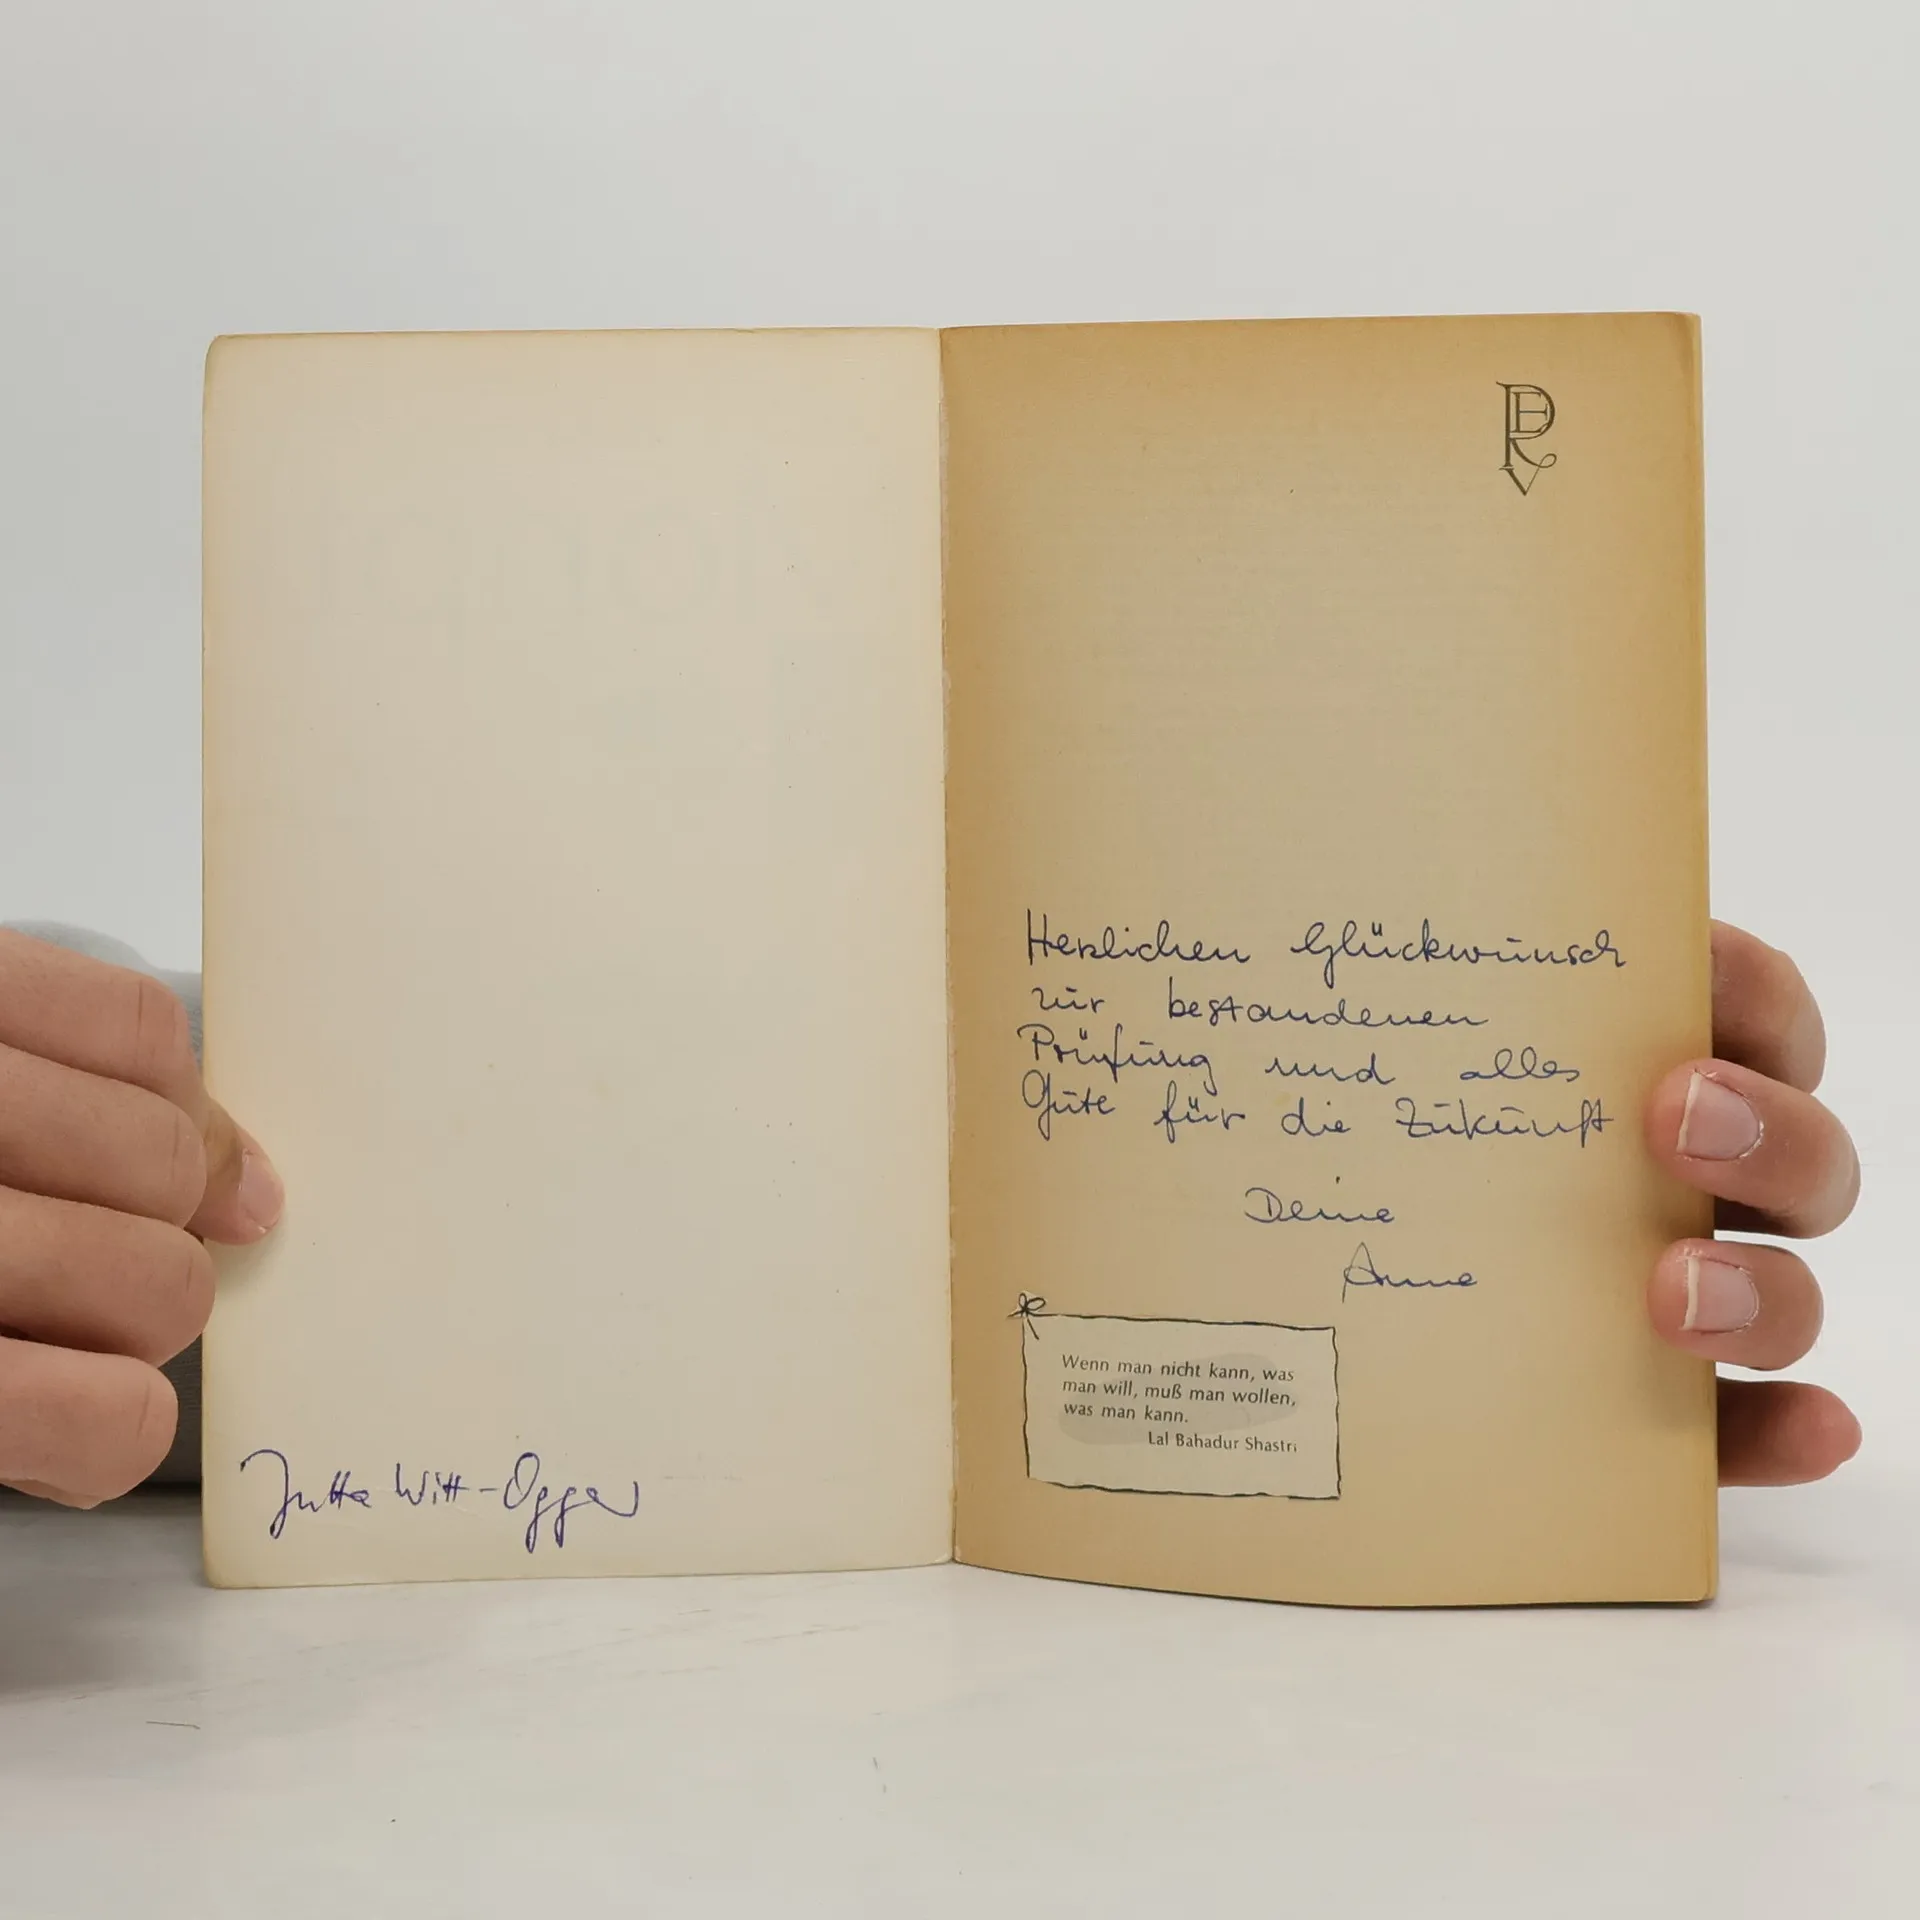 Jutta Witt-Ogger
PERV
Herzlichen Glückwunsch
zur bestandenen
Prüfung und alles
Gute für die Zukunft
Deine
Anne
Wenn man nicht kann, was
man will, muß man wollen,
was man kann.
Lal Bahadur Shastri